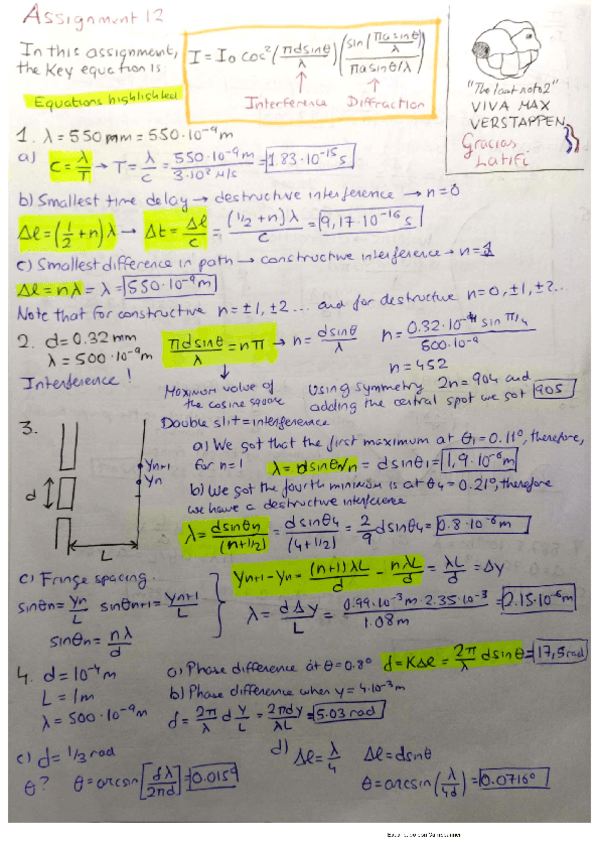 Assignment 12
In this assignment,
the key equation is
I = I₀ cos²(πdsinθ/λ) (sin(πasinθ/λ)/πasinθ/λ)
Interference Diffraction
Equations highlighted
"The last note 2"
VIVA MAX
VERSTAPPEN
Gracias
Latifi
1. λ = 550 mm = 550·10⁻⁹ m
a) c = λ/T → T = λ/c = 550·10⁻⁹ m/3·10⁸ m/s = 1.83·10⁻¹⁵ s
b) Smallest time delay → destructive interference → n = 0
Δl = (1/2 + n) λ → Δt = Δl/c = (1/2 + n) λ/c = 9,17·10⁻¹⁶ s
c) Smallest difference in path → constructive interference → n = 1
Δl = nλ = λ = 550·10⁻⁹ m
Note that for constructive n = ±1, ±2... and for destructive n = 0, ±1, ±2...
2. d = 0.32 mm
λ = 500·10⁻⁹ m
Interference!
πdsinθ/λ = nπ → n = dsinθ/λ
Maximum value of
the cosine square
n = 452
Using symmetry 2n = 904 and
adding the central spot we got 905
3.
Double slit = interference
a) We got that the first maximum at θ₁ = 0.11°, therefore,
for n = 1 λ = dsinθₙ/n = dsinθ₁ = 1,9·10⁻⁶ m
b) We got the fourth minimum is at θ₄ = 0.21°, therefore
we have a destructive interference
λ = dsinθₙ/(n+1/2) = dsinθ₄/(4+1/2) = 2/9 dsinθ₄ = 0.8·10⁻⁶ m
yₙ₊₁
yₙ
d
L
c) Fringe spacing.
sinθₙ = yₙ/L sinθₙ₊₁ = yₙ₊₁/L
sinθₙ = nλ/d
yₙ₊₁ - yₙ = (n+1)λL/d - nλL/d = λL/d = Δy
λ = dΔy/L = 0.99·10⁻³ m · 2.35·10⁻³/1.08 m = 2.15·10⁻⁶ m
4. d = 10⁻⁴ m
L = 1 m
λ = 500·10⁻⁹ m
a) Phase difference at θ = 0.8° d = KΔl = 2π/λ dsinθ = 17,5 rad
b) Phase difference when y = 4·10⁻³ m
d = 2π/λ d y/L = 2πdy/λL = 5.03 rad
c) d = 1/3 rad
θ? θ = arcsin[dλ/2πd] = 0.015°
d) Δl = λ/4 Δl = dsinθ
θ = arcsin(λ/4d) = 0.0716°